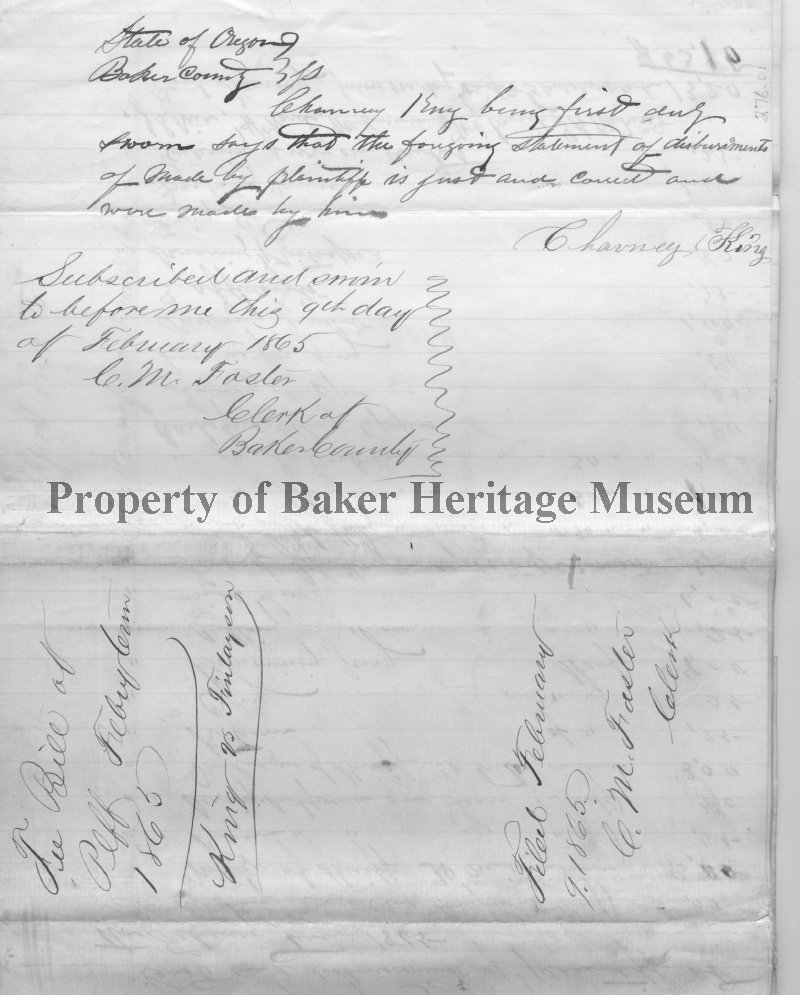 State of Oregon
Baker County } ss
Chauncy King being first duly
sworn says that the foregoing statement of disbursments
of Made by plaintiff is just and correct and
were made by him
Chauncy King
Subscribed and sworn
to before me this 9th day
of February 1865
C. M. Foster
Clerk of
Baker County
276.01
Property of Baker Heritage Museum
Fee Bill of
Plff Feby term
1865
King vs Finlayson
Filed February
9. 1865.
C. M. Foster
Clerk